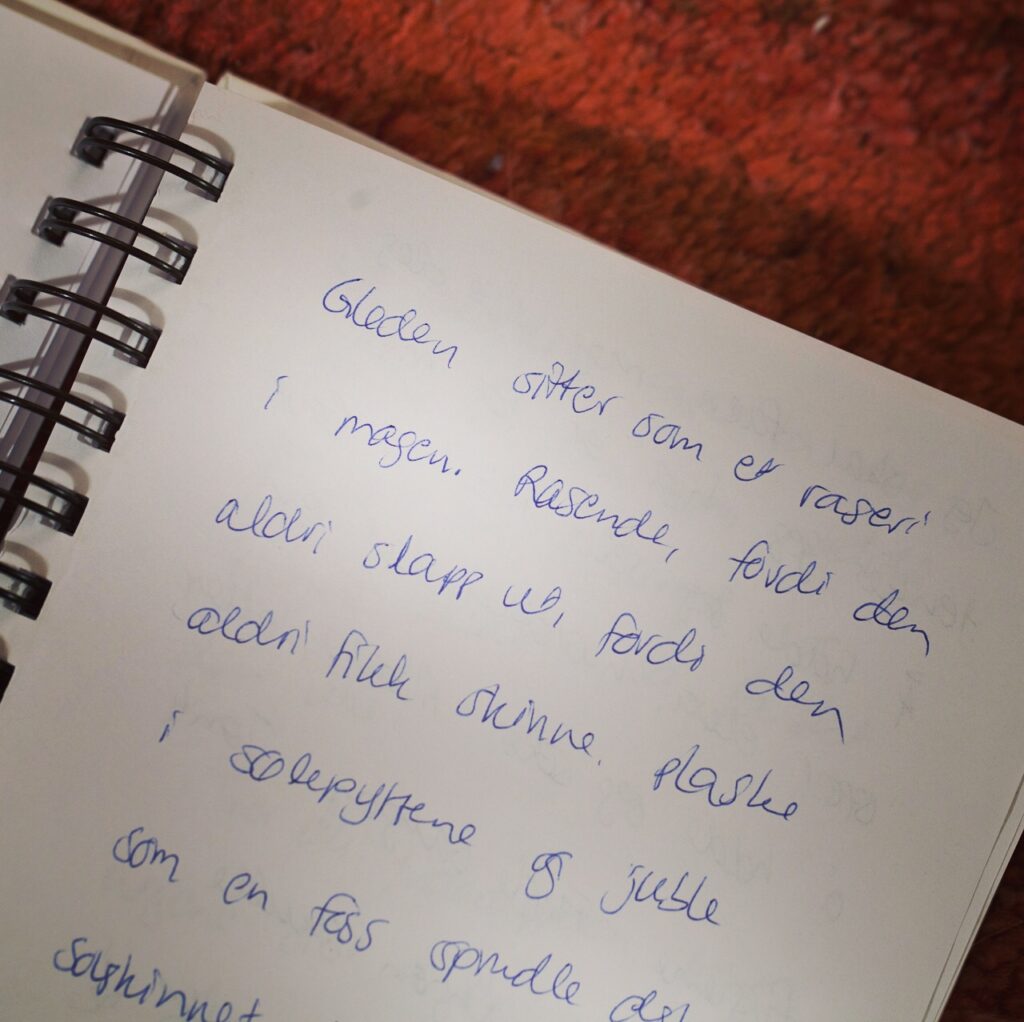 Gleden sitter som et raseri
i magen. Rasende, fordi den
aldri slapp ut, fordi den
aldri fikk skinne. plaske
i sølepyttene og juble
som en foss sprudle